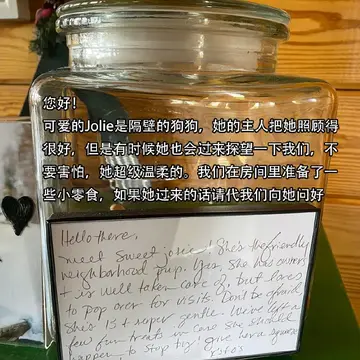 您好!
可爱的Jolie是隔壁的狗狗，她的主人把她照顾得
很好，但是有时候她也会过来探望一下我们，不
要害怕，她超级温柔的。我们在房间里准备了一
些小零食，如果她过来的话请代我们向她问好
Hello there,
Sweet Sweet Jolie! She's the friendly
neighborhood pup. Yes, she has owner
+ is well taken care of, but loves
to pop over for visits. Don't be afraid
She's 13 + super gentle. We've left a
few fun treats in case she should
happen to stop by! Give her a squeeze